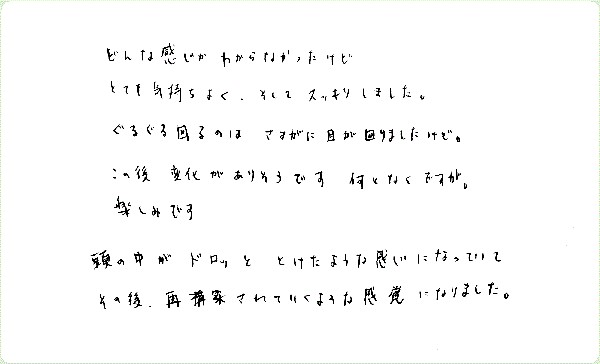 どんな感じかわからなかったけど
とても気持ちよく、そしてスッキリしました。
ぐるぐる回るのは さすがに目が回りましたけど。
この後 変化がありそうです 何となくですが。
楽しみです
頭の中が ドロッと とけたような感じになっていて
その後、再構築されていくような感覚になりました。